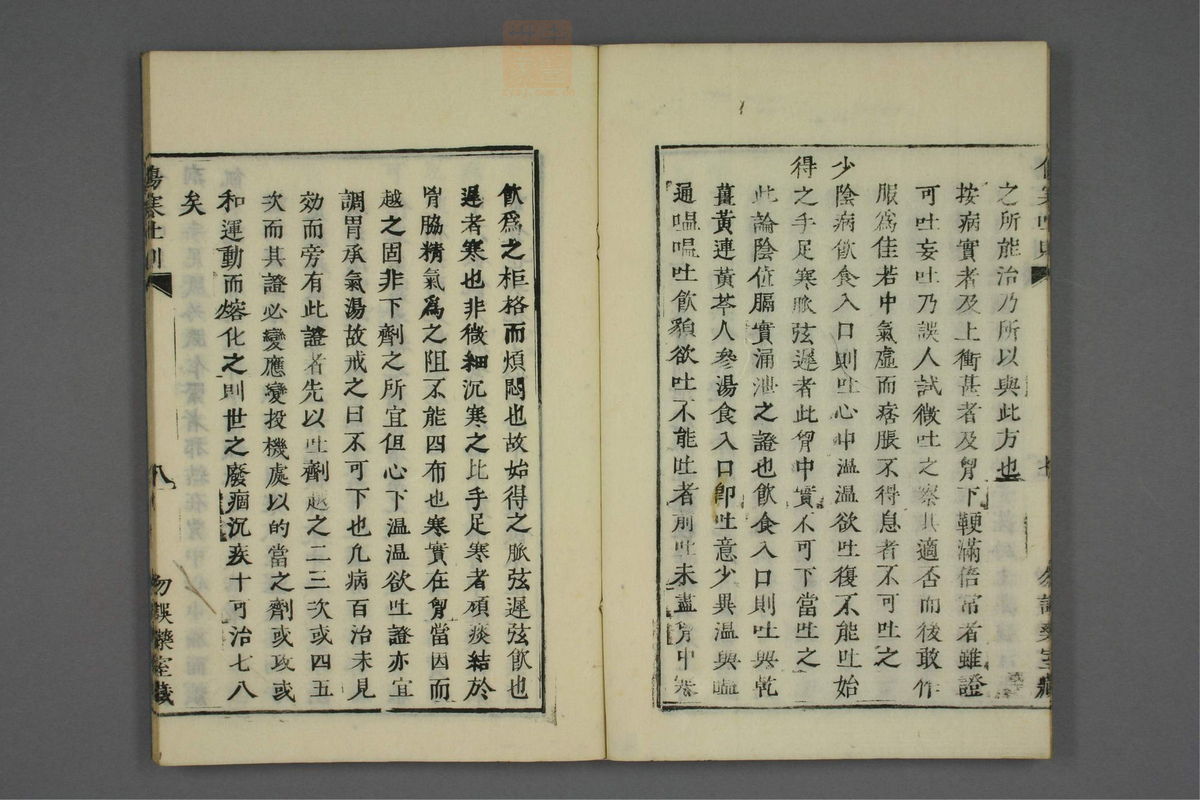 之所能治乃所以與此方也
按病實者及上衝甚者及胷下鞕滿倍常者雖證
可吐妄吐乃誤人試微吐之察其適否而後敢作
服爲佳若中氣虛而痞脹不得息者不可吐之
少陰病飲食入口則吐心中溫溫欲吐復不能吐始
得之手足寒脈弦遲者此胷中實不可下當吐之
此論陰位膈實涌泄之證也飲食入口則吐與乾
薑黃連黃芩人參湯食入口卽吐意少異温與嗢
通嗢嗢吐飲貌欲吐不能吐者前吐未盡胷中寒
飮爲之柜格而煩悶也故始得之脈弦遲弦飮也
遲者寒也非微細沉寒之比手足寒者頑痰結於
胷脇精氣爲之阻不能四布也寒實在胷當因而
越之固非下劑之所宜但心下温温欲吐證亦宜
調胃承氣湯故戒之曰不可下也凡病百治未見
効而旁有此證者先以吐劑越之二三次或四五
次而其證必變應變投機處以的當之劑或攻或
和運動而熔化之則世之廢痼沉疾十可治七八
矣
傷寒吐則
八
勿誤藥室藏